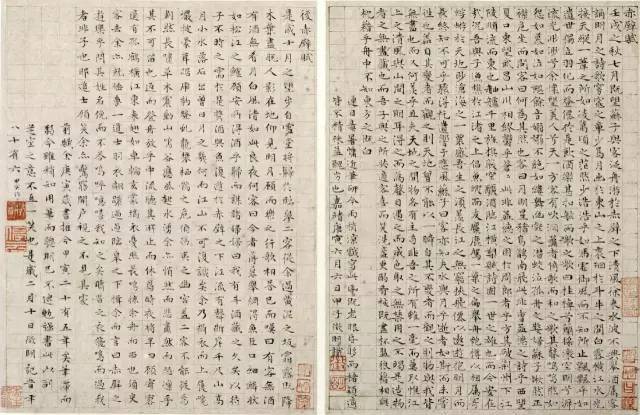 赤壁賦
壬戌之秋七月既望蘇子與客泛舟游於赤壁之下清風徐來水波不興舉酒屬客
誦明月之詩歌窈窕之章少焉月出於東山之上裴回於斗牛之間白露橫江水光
接天縱一葦之所如凌萬頃之茫然浩浩乎如馮虛御風而不知所止飄飄乎如
遺世獨立羽化而登僊於是飲酒樂甚扣舷而歌之歌曰桂棹兮蘭槳擊空明兮泝
流光渺渺兮余懷望美人兮天一方客有吹洞簫者倚歌而和之其聲嗚嗚然如
怨如慕如泣如訴餘音嫋嫋不絕如縷舞幽壑之潛蛟泣孤舟之嫠婦蘇子愀然正
襟危坐而問客曰何為其然也客曰月明星稀烏鵲南飛此非曹孟德之詩乎西望
夏口東望武昌山川相繆鬱乎蒼蒼此非孟德之困於周郎者乎方其破荊州下江
陵順流而東也舳艫千里旌旗蔽空釃酒臨江橫槊賦詩固一世之雄也而今安在
哉況吾與子漁樵於江渚之上侶魚蝦而友麋鹿駕一葉之扁舟舉匏樽以相屬寄
蜉蝣於天地渺滄海之一粟哀吾生之須臾羨長江之無窮挾飛僊以遨遊抱明月而
長終知不可乎驟得託遺響於悲風蘇子曰客亦知夫水與月乎逝者如斯而未嘗
往也盈虛者如彼而卒莫消長也蓋將自其變者而觀之則天地曾不能以一瞬自其不變者而觀之則物與我皆
無盡也而又何羨乎且夫天地之間物各有主苟非吾之所有雖一毫而莫取惟江
上之清風與山間之明月耳得之而為聲目遇之而成色取之無禁用之不竭是造物
者之無盡藏也而吾與子之所共食客喜而笑洗盞更酌肴核既盡杯盤狼籍相與
枕藉乎舟中不知東方之既白
連日毒暑
嘉靖庚寅六月六日甲子徵明識
後赤壁賦
是歲十月之望步自雪堂將歸於臨皋二客從余過黃泥之坂霜露既降
木葉盡脫人影在地仰見明月顧而樂之行歌相答已而嘆曰有客無酒
有酒無肴月白風清如此良夜何客曰今者薄暮舉網得魚巨口細鱗狀
如松江之鱸顧安所得酒乎歸而謀諸婦婦曰我有斗酒藏之久矣以待
子不時之需於是攜酒與魚復游於赤壁之下江流有聲斷岸千尺山高
月小水落石出曾日月之幾何而江山不可復識矣余乃攝衣而上履巉
巖披蒙茸踞虎豹登虬龍攀栖鶻之危巢俯馮夷之幽宮蓋二客不能從焉
劃然長嘯草木震動山鳴谷應風起水湧余亦悄然而悲肅然而恐凜乎
其不可留也返而登舟放乎中流聽其所止而休焉時夜將半四顧寂寥
適有孤鶴橫江東來翅如車輪玄裳縞衣戛然長鳴掠余舟而西也須臾
客去余亦就睡夢一道士羽衣翩躚過臨皋之下揖余而言曰赤壁之
遊樂乎問其姓名俛而不答嗚呼噫嘻我知之矣疇昔之夜飛鳴而過我
者非子也耶道士顧笑余亦驚寤開戶視之不見其處
前賦余庚寅歲書抵今甲寅二十有五年矣筆滯而
八十有六